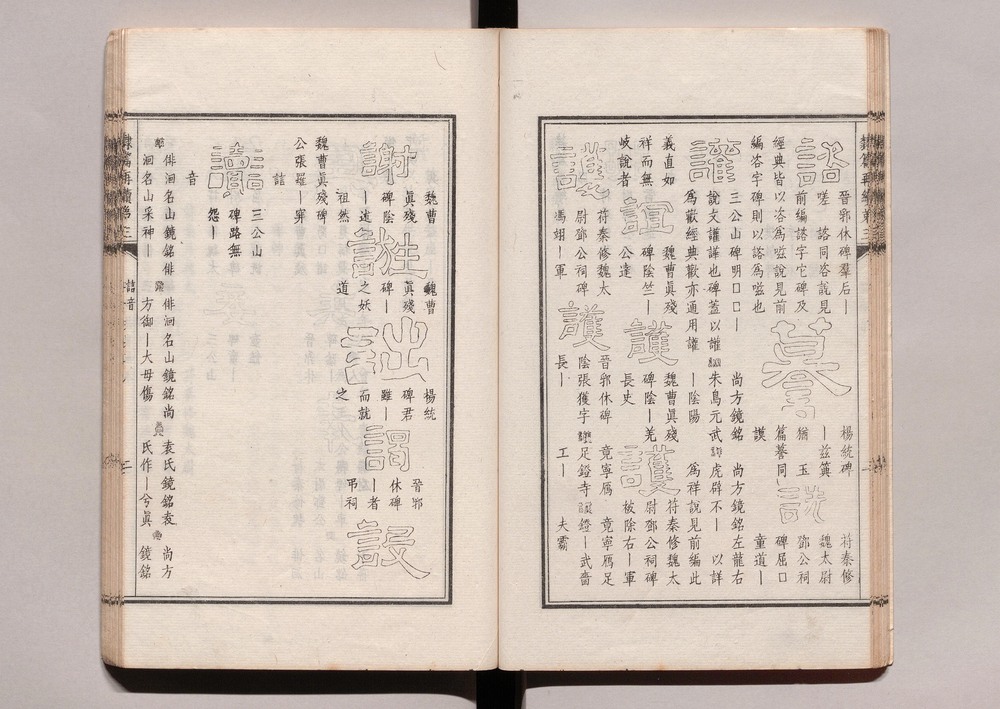 諮
晉郭休碑羣后丨
嗟 諮同咨說見
前編諮字它碑及
經典皆以咨爲嗞說見前
編咨字碑則以諮爲嗞也
謩
楊統碑
丨兹
猶 玉
篇謩同
謨
詵
苻秦修
魏太尉
鄧公祠
碑屈口
童道丨
讙
三公山碑明口口丨
說文讙譁也碑蓋以讙
爲歡經典歡亦通用讙
尚方鏡銘
朱鳥元武
丨陰陽
尚方鏡銘左龍右
虎辟不丨 以詳
爲祥說見前編此
義直如
祥而無
岐說者
誼
魏曹眞殘
碑陰竺丨
公達
護
魏曹眞殘
碑陰丨羌
長史
護
苻秦修魏太
尉鄧公祠碑
被除右丨軍
護
苻秦修魏太
尉鄧公祠碑
馮翊丨軍
護
晉郭休碑
陰張獲字
長丨
竟寧鴈
足鐙寺
工丨
竟寧鴈足
鐙丨武嗇
夫霸
謝
魏曹
眞殘
碑陰
丨述
祖然
誑
魏曹
眞殘
碑丨
之妖
道
詘
楊統
碑君
雖丨
而就
之
謁
晉郭
休碑
丨者
弔祠
設
魏曹眞殘碑
公張羅丨穽
詰
讟
三公山
碑路無
怨丨
音
俳洄名山鏡銘俳
洄名山采神丨
俳洄名山鏡銘尚
方御丨大毋傷
袁氏鏡銘袁
氏作丨兮眞
尚方
鏡銘
詰音